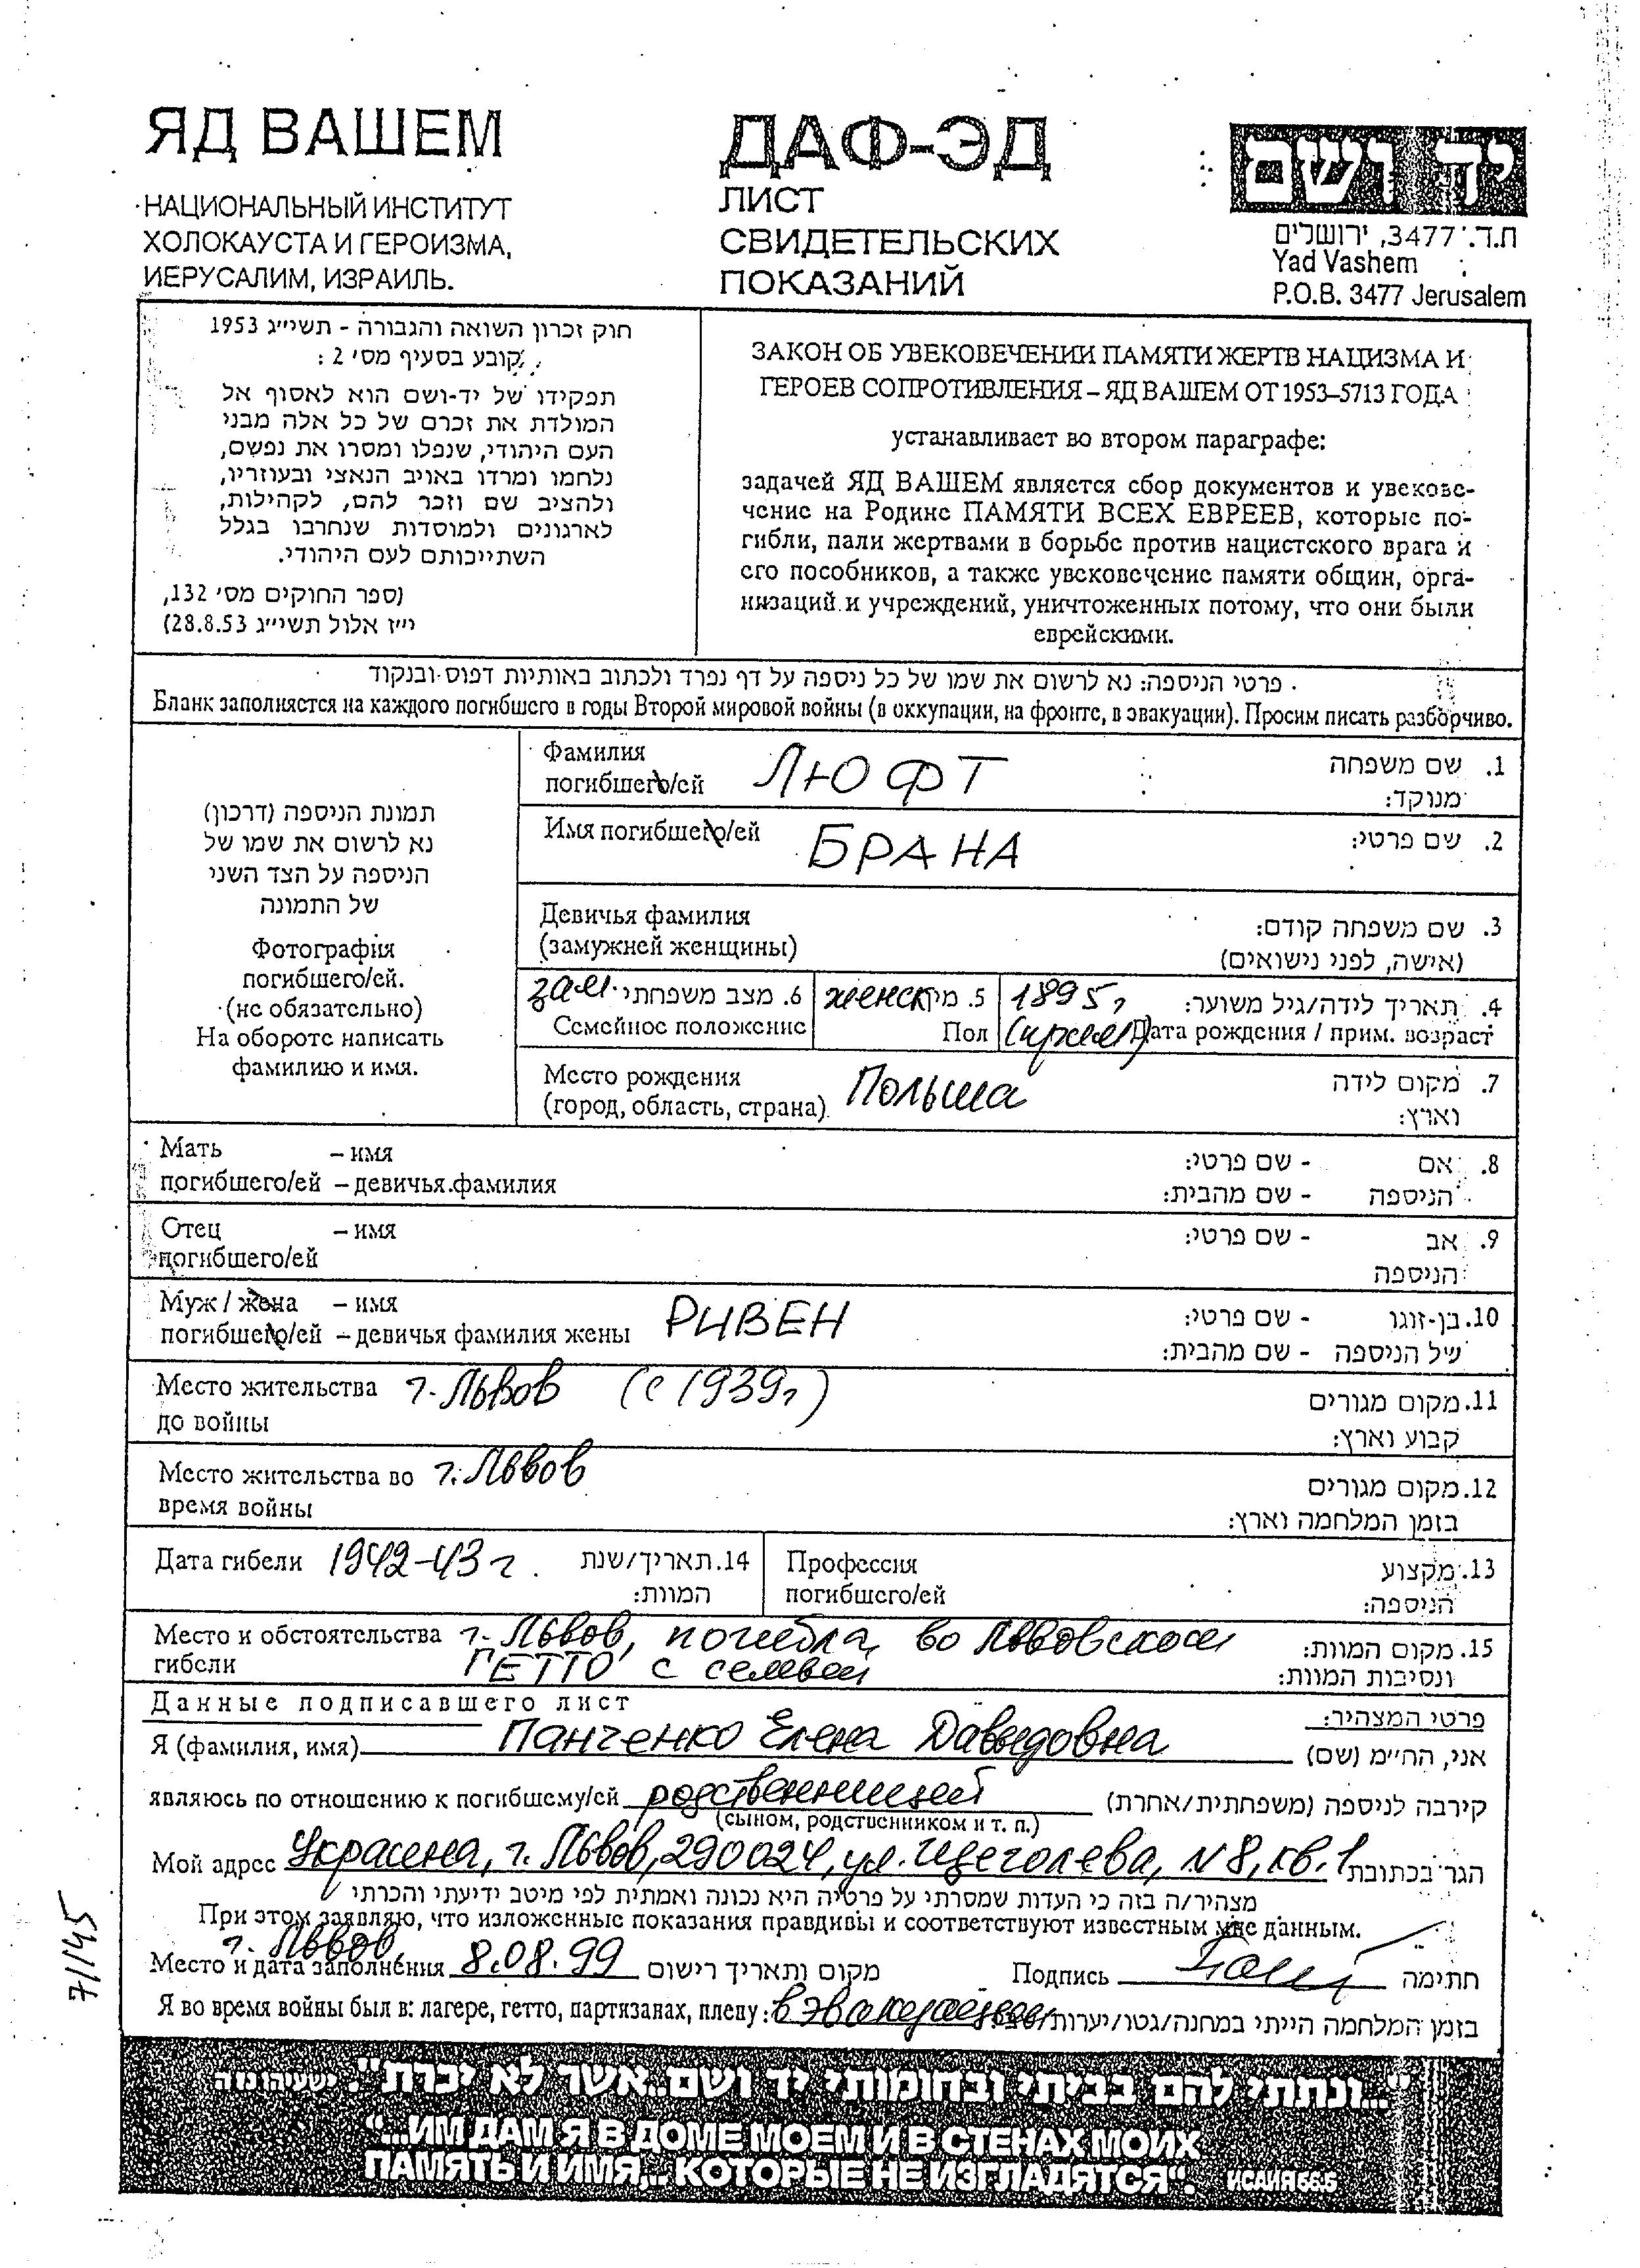 ЯД ВАШЕМ
НАЦИОНАЛЬНЫЙ ИНСТИТУТ
ХОЛОКАУСТА И ГЕРОИЗМА,
ИЕРУСАЛИМ, ИЗРАИЛЬ.
ДАФ-ЭД
ЛИСТ
СВИДЕТЕЛЬСКИХ
ПОКАЗАНИЙ
יד ושם
ת.ד. 3477, ירושלים
Yad Vashem
P.O.B. 3477 Jerusalem
חוק זכרון השואה והגבורה - תשי״ג 1953
קובע בסעיף מס׳ 2 :
תפקידו של יד-ושם הוא לאסוף אל
המולדת את זכרם של כל אלה מבני
העם היהודי, שנפלו ומסרו את נפשם,
נלחמו ומרדו באויב הנאצי ובעוזריו,
ולהציב שם וזכר להם, לקהילות,
לארגונים ולמוסדות שנחרבו בגלל
השתייכותם לעם היהודי.
(ספר החוקים מס׳ 132,
י״ז אלול תשי״ג 28.8.53)
ЗАКОН ОБ УВЕКОВЕЧЕНИИ ПАМЯТИ ЖЕРТВ НАЦИЗМА И
ГЕРОЕВ СОПРОТИВЛЕНИЯ – ЯД ВАШЕМ ОТ 1953–5713 ГОДА
устанавливает во втором параграфе:
задачей ЯД ВАШЕМ является сбор документов и увекове-
чение на Родине ПАМЯТИ ВСЕХ ЕВРЕЕВ, которые по-
гибли, пали жертвами в борьбе против нацистского врага и
его пособников, а также увековечение памяти общин, орга-
низаций и учреждений, уничтоженных потому, что они были
еврейскими.
פרטי הניספה: נא לרשום את שמו של כל ניספה על דף נפרד ולכתוב באותיות דפוס ובנקוד
Бланк заполняется на каждого погибшего в годы Второй мировой войны (в оккупации, на фронте, в эвакуации). Просим писать разборчиво.
תמונת הניספה (דרכון)
נא לרשום את שמו של
הניספה על הצד השני
של התמונה
Фотография
погибшего/ей.
(не обязательно)
На обороте написать
фамилию и имя.
Фамилия
погибшего/ей ЛЮФТ
1. שם משפחה
מנוקד:
Имя погибшего/ей БРАНА 2. שם פרטי:
Девичья фамилия
(замужней женщины)
3. שם משפחה קודם:
(אישה, לפני נישואים)
зам. 6. מצב משפחתי
Семейное положение
женск 5. מין
Пол
1895г 4. תאריך לידה/גיל משוער:
Дата рождения / прим. возраст
Место рождения
(город, область, страна) Польша
7. מקום לידה
וארץ:
Мать – имя
погибшего/ей – девичья фамилия
8. אם - שם פרטי:
הניספה - שם מהבית:
Отец – имя
погибшего/ей
9. אב - שם פרטי:
הניספה
Муж / жена – имя
погибшего/ей – девичья фамилия жены РИВЕН
10. בן-זוגו - שם פרטי:
של הניספה - שם מהבית:
Место жительства г. Львов (с 1939г)
до войны
11. מקום מגורים
קבוע וארץ:
Место жительства во г. Львов
время войны
12. מקום מגורים
בזמן המלחמה וארץ:
Дата гибели 1942-43 г. 14. תאריך/שנת
המוות:
Профессия
погибшего/ей
13. מקצוע
הניספה:
Место и обстоятельства г. Львов, погибла во Львовском
гибели ГЕТТО с семьей
15. מקום המוות:
ונסיבות המוות:
Данные подписавшего лист
פרטי המצהיר:
Я (фамилия, имя) Панченко Елена Давыдовна אני, הח״מ (שם)
являюсь по отношению к погибшему/ей родственницей קירבה לניספה (משפחתית/אחרת)
(сыном, родственником и т. п.)
Мой адрес Украина, г. Львов, 290024, ул. Щеголева, N 8, кв. 1 הגר בכתובת
מצהיר/ה בזה כי העדות שמסרתי על פרטיה היא נכונה ואמתית לפי מיטב ידיעתי והכרתי
При этом заявляю, что изложенные показания правдивы и соответствуют известным мне данным.
г. Львов,
Место и дата заполнения 8.08.99 מקום ותאריך רישום Подпись חתימה
Я во время войны был в: лагере, гетто, партизанах, плену: в эвакуации בזמן המלחמה הייתי במחנה/גטו/יערות
71145
"...ונתתי להם בביתי ובחומותי יד ושם...אשר לא יכרת". ישעיהו נו׳ה
"...ИМ ДАМ Я В ДОМЕ МОЕМ И В СТЕНАХ МОИХ
ПАМЯТЬ И ИМЯ... КОТОРЫЕ НЕ ИЗГЛАДЯТСЯ". ИСАИЯ 56:5